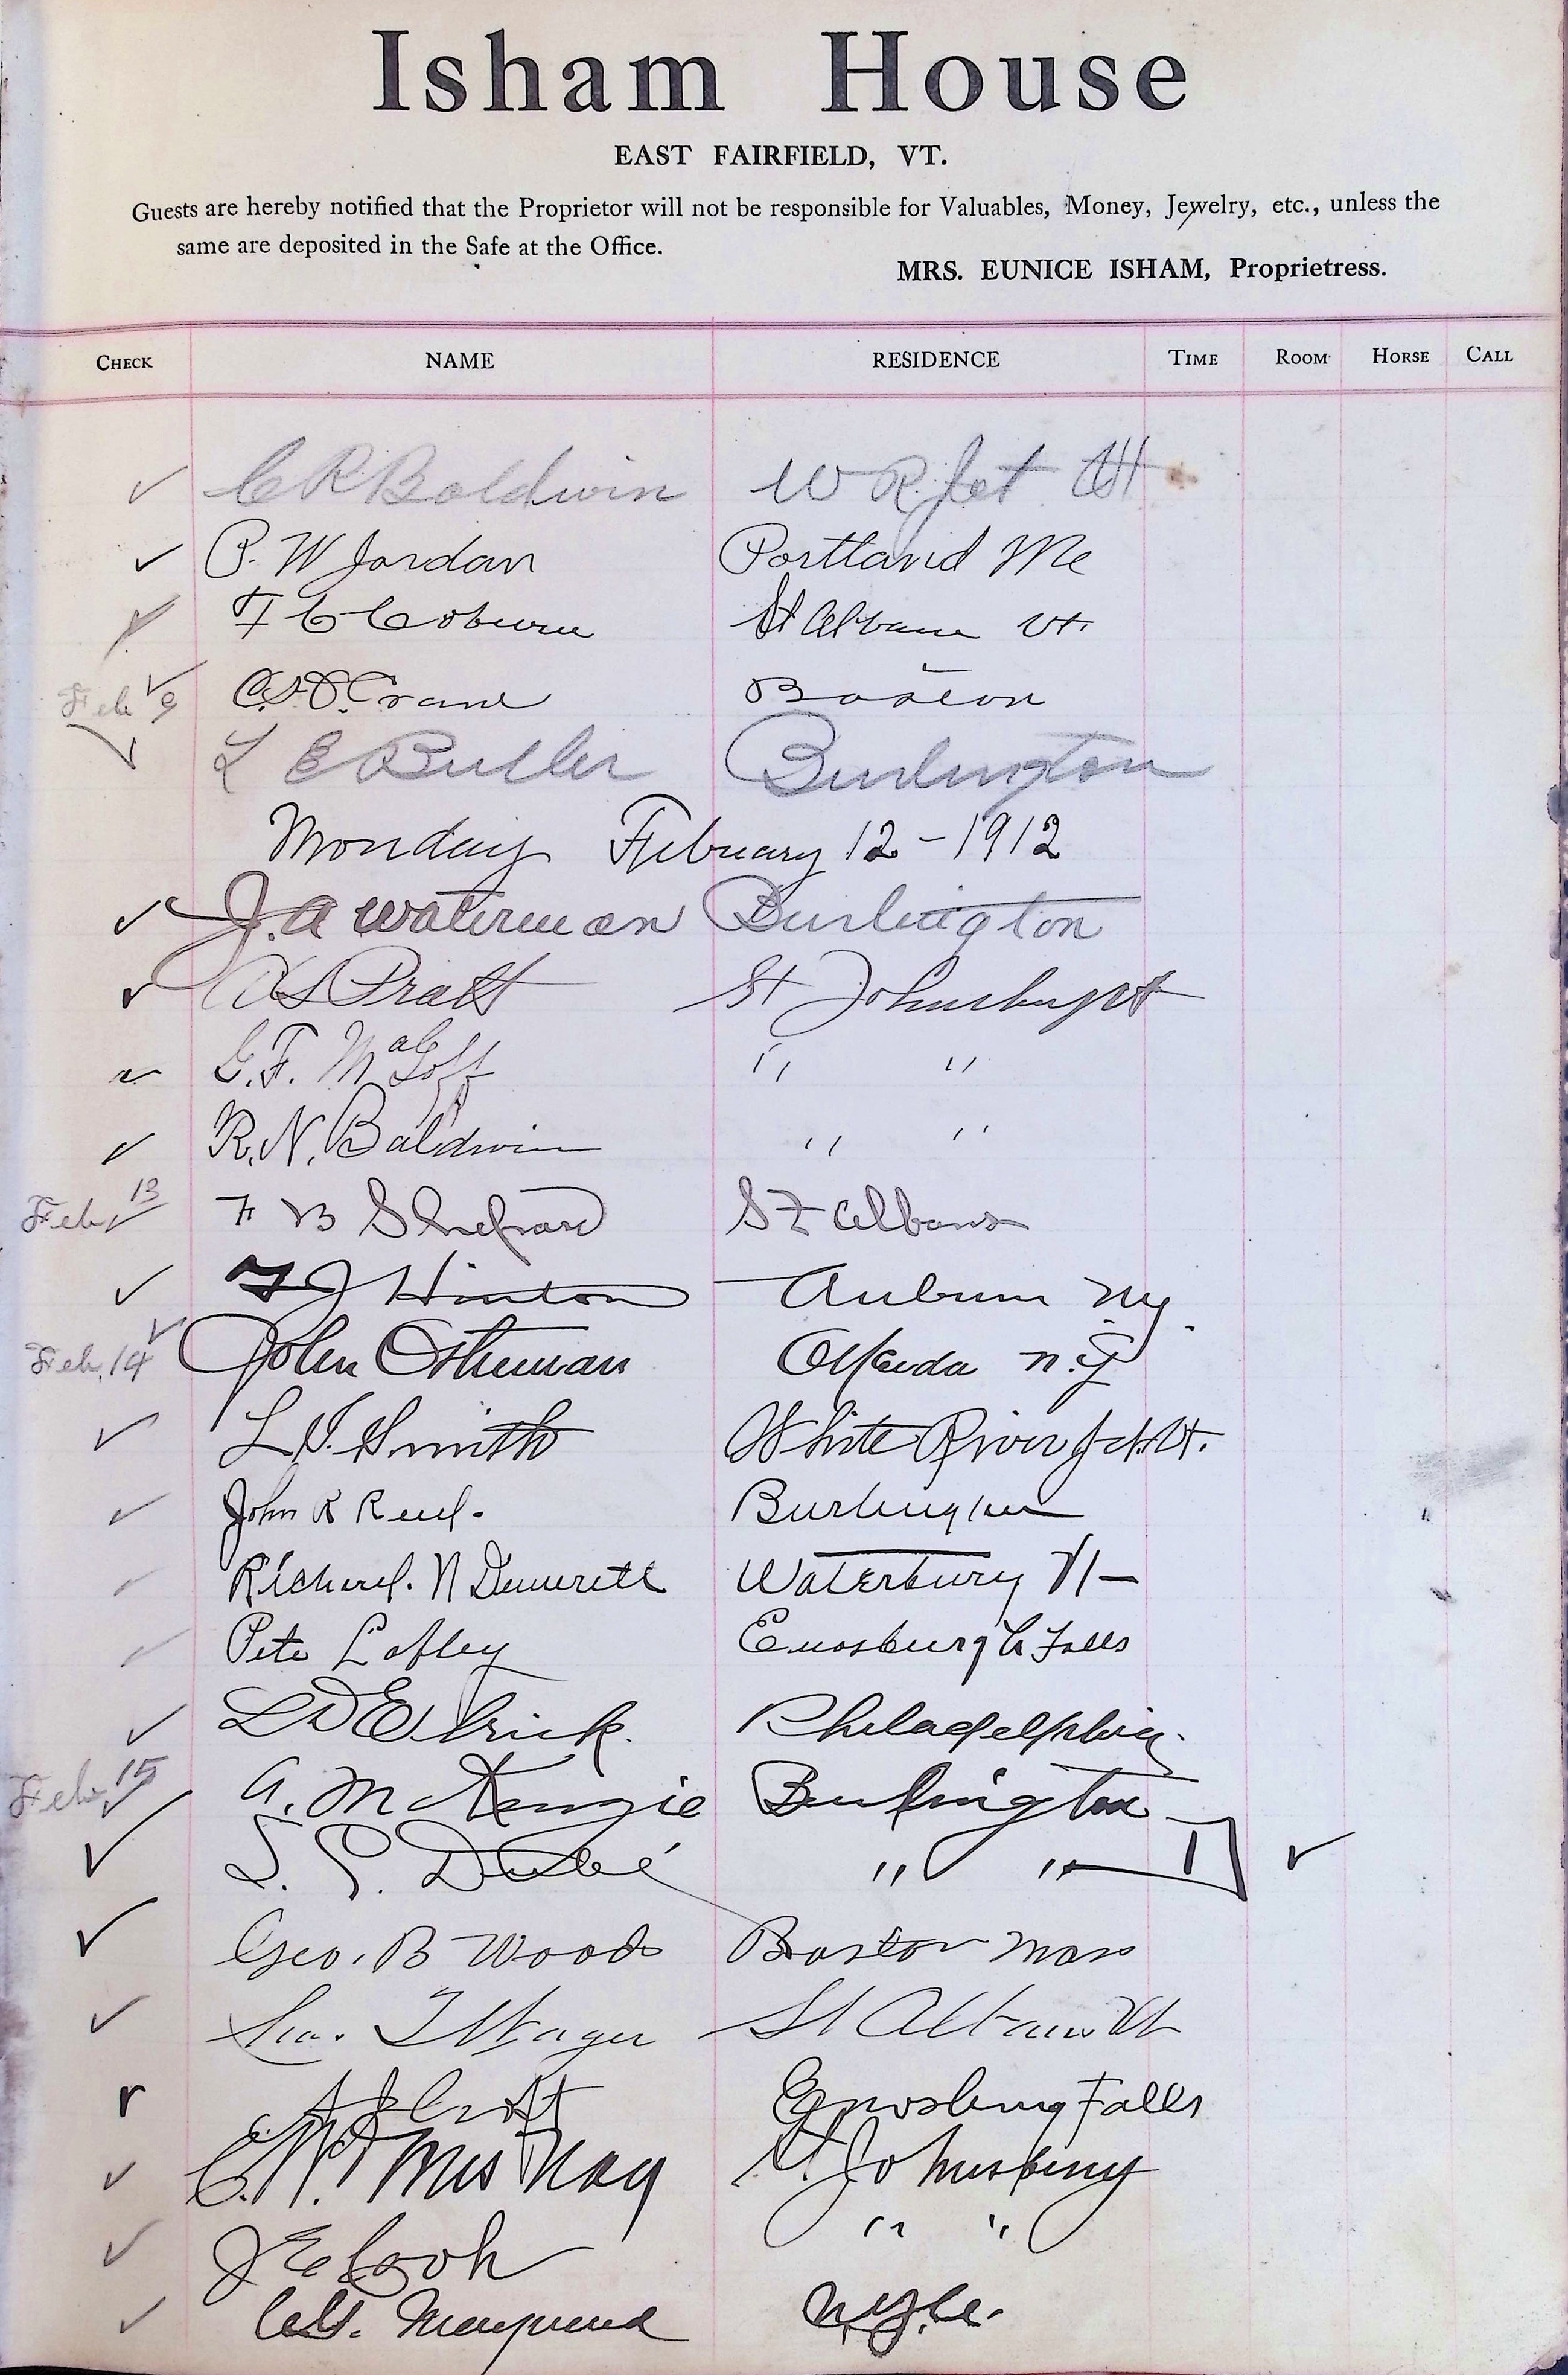 Isham House
EAST FAIRFIELD, VT.
Guests are hereby notified that the Proprietor will not be responsible for Valuables, Money, Jewelry, etc., unless the
same are deposited in the Safe at the Office.
MRS. EUNICE ISHAM, Proprietress.
CHECK NAME RESIDENCE TIME ROOM HORSE CALL
C R Baldwin W R Jct Vt
P. W Jordan Portland Me
F C Coburn St Albans Vt.
Feb 9 Crane Boston
L E Butler Burlington
Monday February 12-1912
J. A Waterman Burlington
A S Pratt St Johnsbury Vt
G. F. " "
R. N. Baldwin " "
Feb 13 F B Shepard St Albans
F J Hinton Auburn N.y.
Feb. 14 John N.Y
L J. Smith White River Jct. Vt.
John R Reed. Burlington
Richard. N Demeritt Waterbury Vt
Pete Lafley Enosburgh Falls
L D Philadelphia.
Feb. 15 A. McKenzie Burlington
S. P. Dubé " " 17
Geo. B Woods Boston Mass
St Albans Vt
Croft Enosburg Falls
St. Johnsbury
J E Cook " "
Maynard N.Y.C.